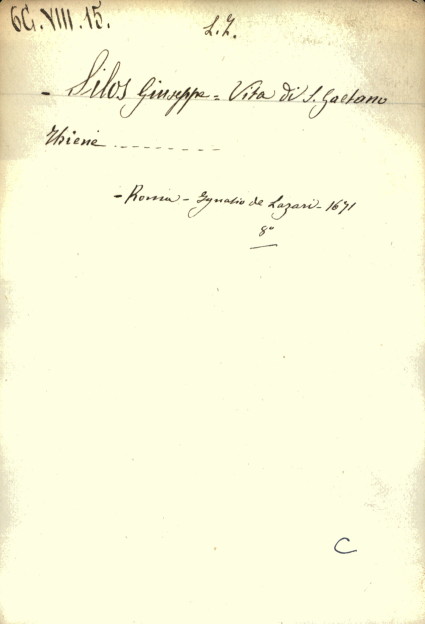 6G.VIII.15.
L.Z.
- Silos Giuseppe = Vita di S. Gaetano
Thiene - - - - - - - - -
- Roma - Ignatio de Lazari - 1671
8°
C